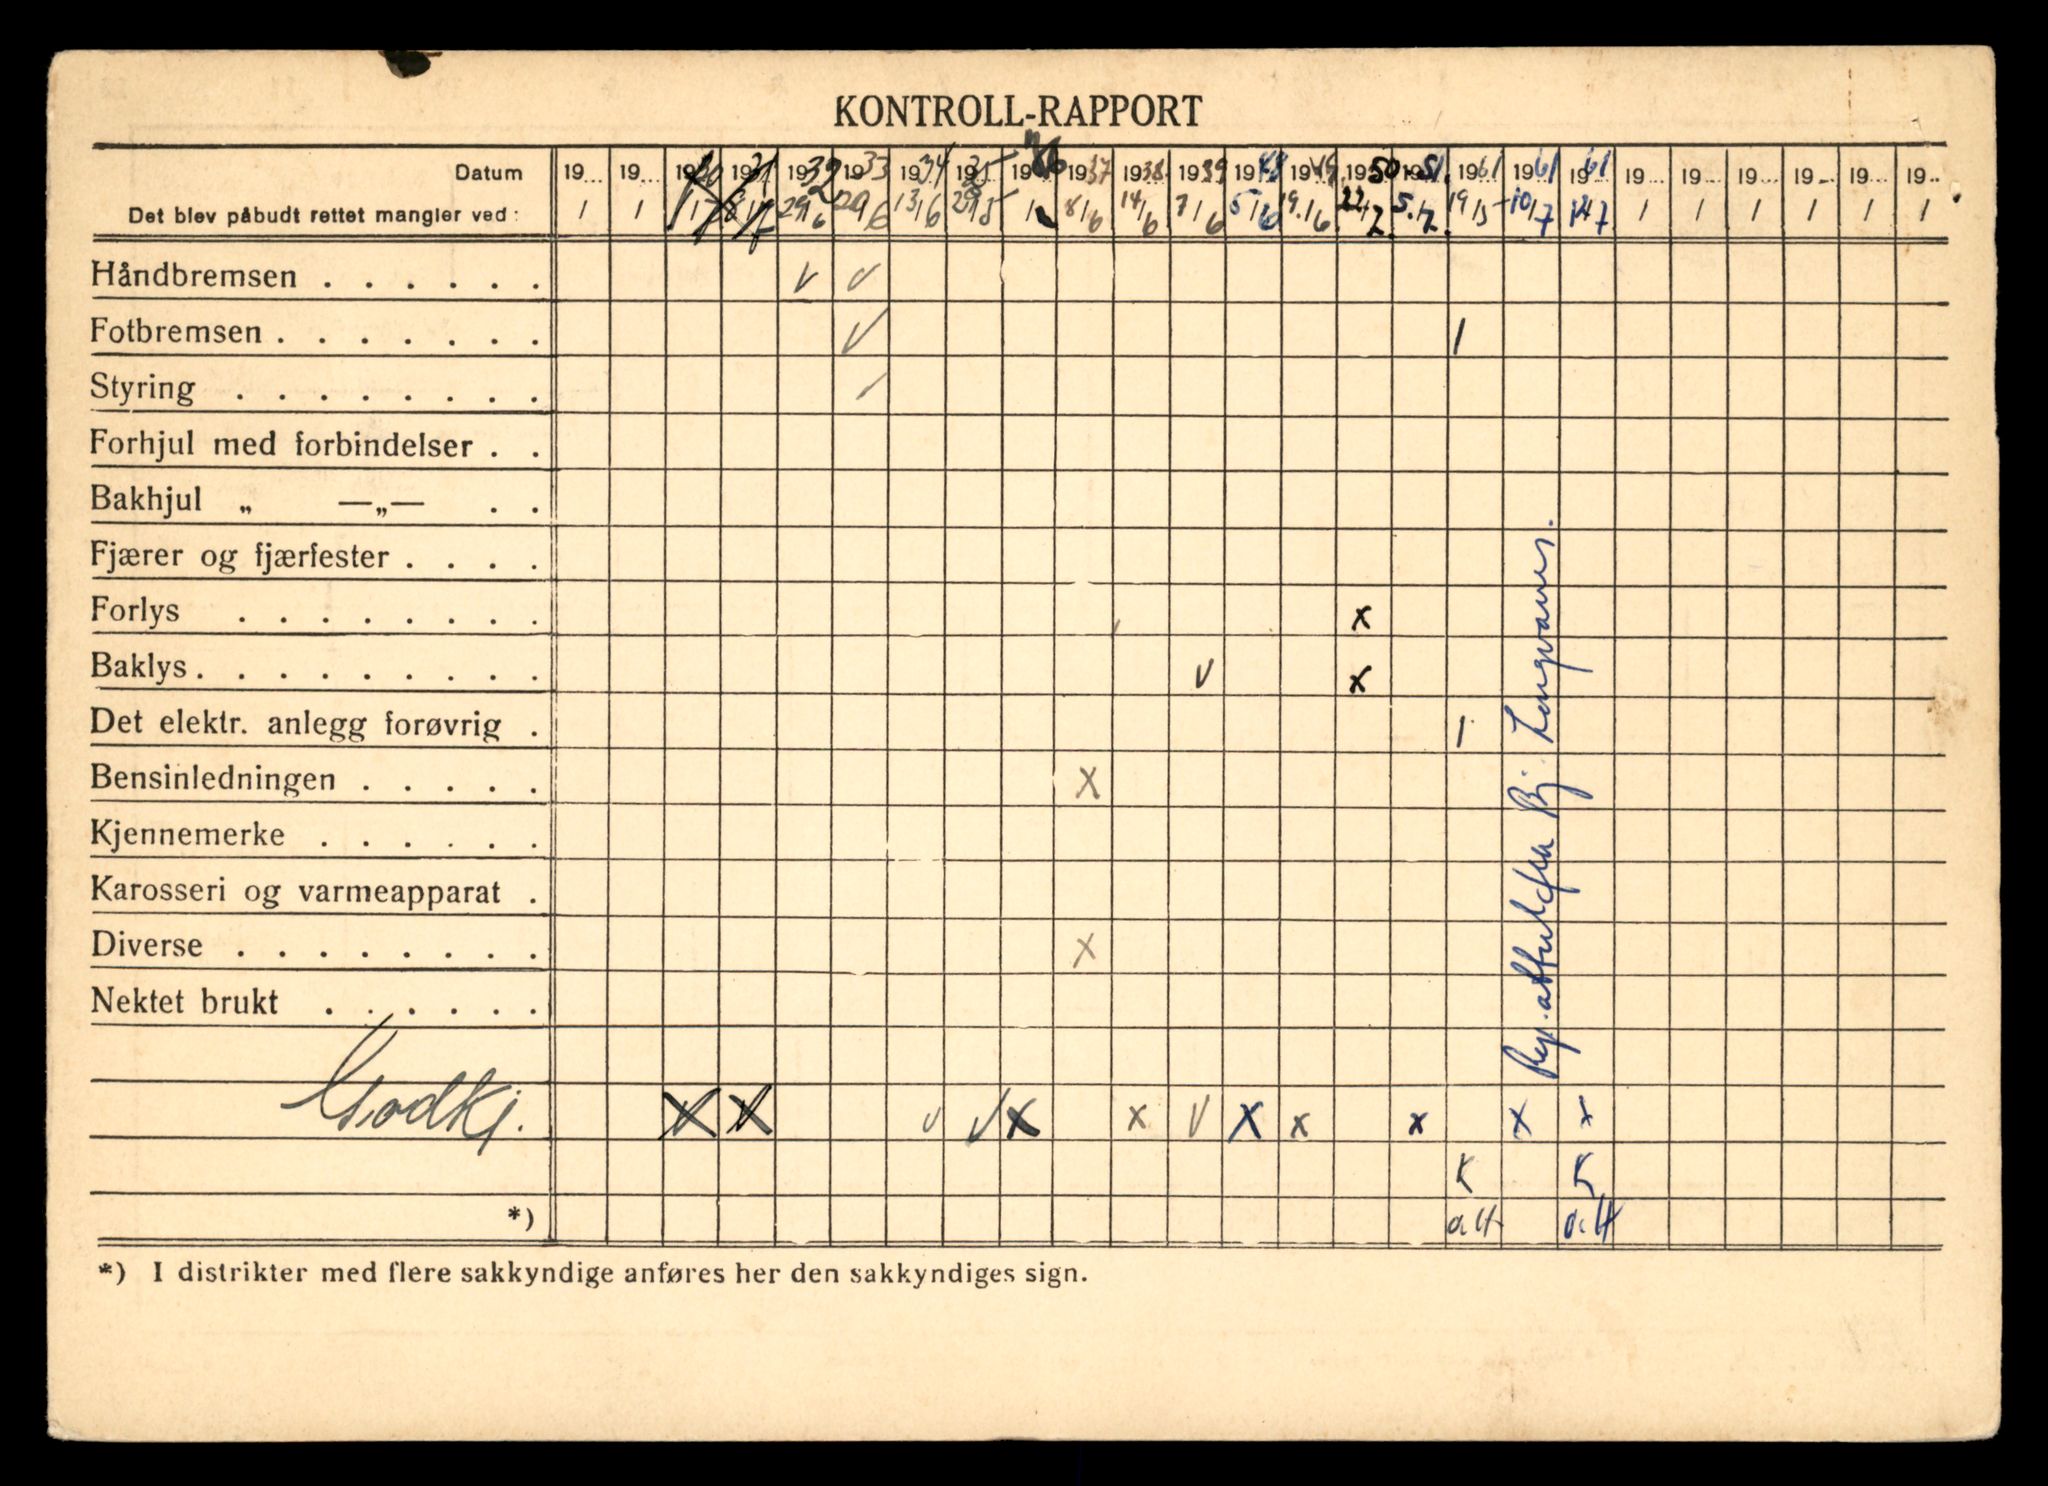 KONTROLL-RAPPORT
Datum 19.... 19.... 1930 1931 1932 1933 1934 1935 1936 1937 1938 1939 1948 1949 1950 1951 1961 1961 1961 19.... 19.... 19.... 19.... 19.... 19....
Det blev påbudt rettet mangler ved: / / 29/6 29/6 13/6 29/5 / 8/6 14/6 7/6 5/6 19./6 22/2. 5./2. 19/5 10/7 / / / / / /
Håndbremsen . . . . . . V V
Fotbremsen . . . . . . . V 1
Styring . . . . . . . . ✓
Forhjul med forbindelser . .
Bakhjul „ —„— . .
Fjærer og fjærfester . . . .
Forlys . . . . . . . . x
Baklys . . . . . . . . . V x
Det elektr. anlegg forøvrig . 1
Bensinledningen . . . . . x
Kjennemerke . . . . . .
Karosseri og varmeapparat .
Diverse . . . . . . . . x
Nektet brukt . . . . . .
Rep. attest fra Bj. Lengvaner.
Godkj. X X V V X x V X x x x x
K K
*) alt alt
*) I distrikter med flere sakkyndige anføres her den sakkyndiges sign.